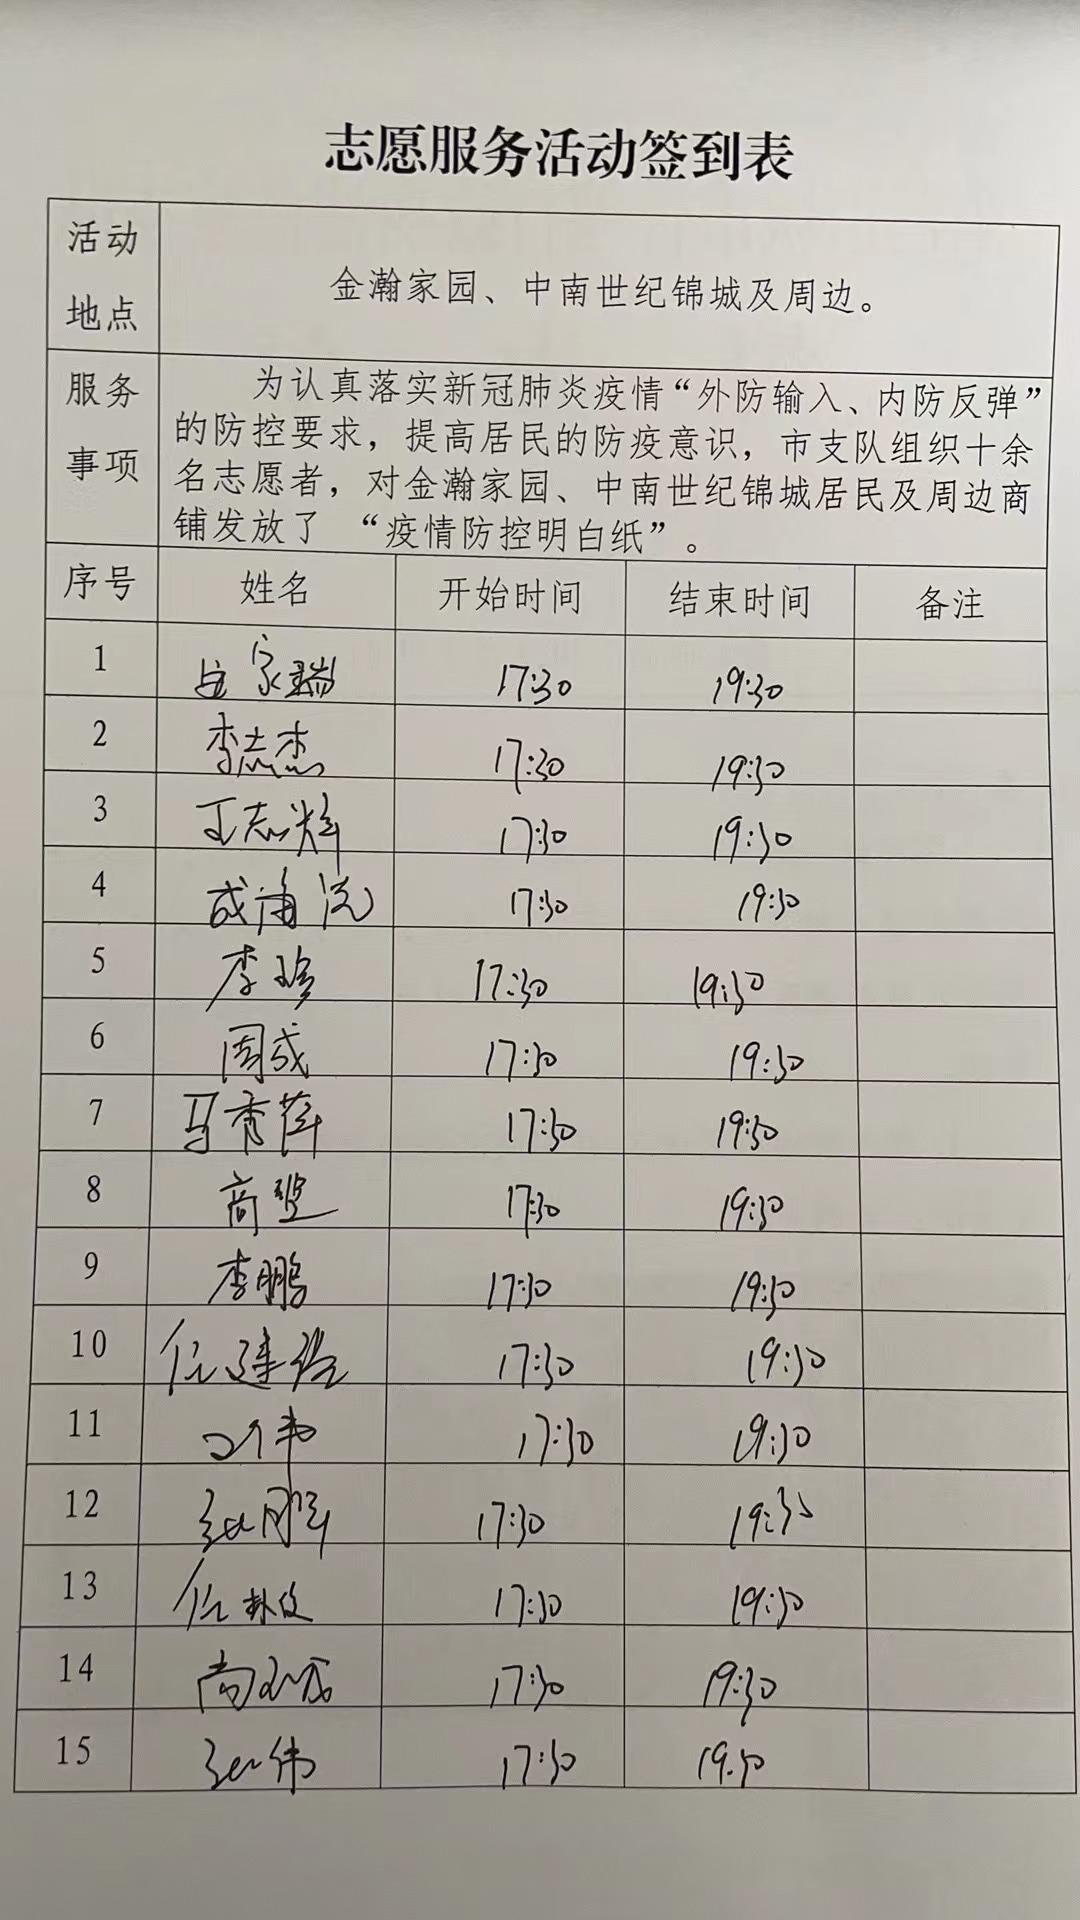 志愿服务活动签到表
活动地点 金瀚家园、中南世纪锦城及周边。
服务事项 为认真落实新冠肺炎疫情“外防输入、内防反弹”
的防控要求，提高居民的防疫意识，市支队组织十余
名志愿者，对金瀚家园、中南世纪锦城居民及周边商
铺发放了 “疫情防控明白纸”。
序号 姓名 开始时间 结束时间 备注
1 17:30 19:30
2 李志杰 17:30 19:30
3 王志辉 17:30 19:30
4 17:30 19:30
5 李珍 17:30 19:30
6 周成 17:30 19:30
7 马秀萍 17:30 19:30
8 商 17:30 19:30
9 李鹏 17:30 19:30
10 任建 17:30 19:30
11 17:30 19:30
12 17:30 19:30
13 任 17:30 19:30
14 尚 17:30 19:30
15 17:30 19:30